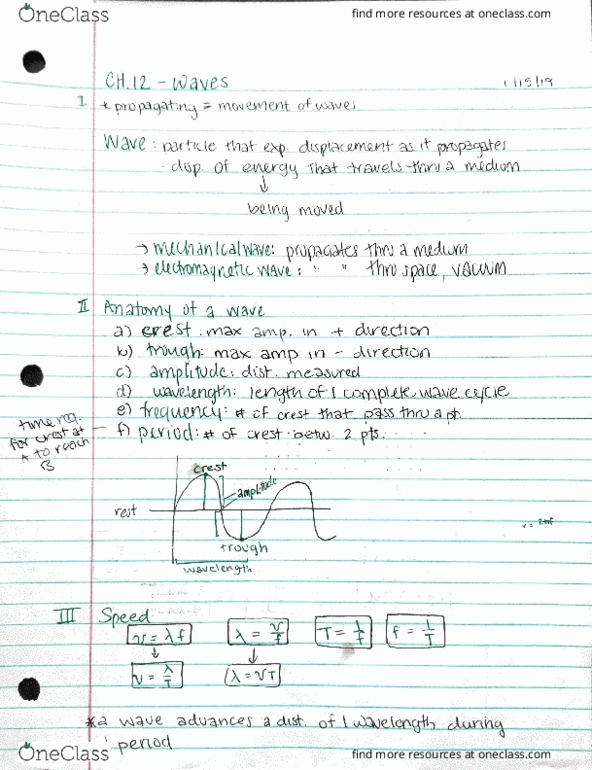 OneClass
find more resources at oneclass.com
CH.12 - Waves
1/15/19
I * propagating = movement of waves
Wave: particle that exp. displacement as it propagates
- disp. of energy that travels thru a medium
↓
being moved
→ mechanical wave: propagates thru a medium
→ electromagnetic wave: " " thru space, vacuum
II Anatomy of a wave
a) crest: max amp. in + direction
b) trough: max amp in - direction
c) amplitude: dist. measured
d) wavelength: length of 1 complete wave cycle
e) frequency: # of crest that pass thru a pt.
f) period: # of crest betw. 2 pts.
time req.
for crest at
A to reach
B
crest
amplitude
rest
trough
wavelength
III Speed
v = λf
λ = v/f
T = 1/f
f = 1/T
↓ ↓
v = λ/T
λ = vT
* a wave advances a dist. of 1 wavelength during
1 period
OneClass
find more resources at oneclass.com